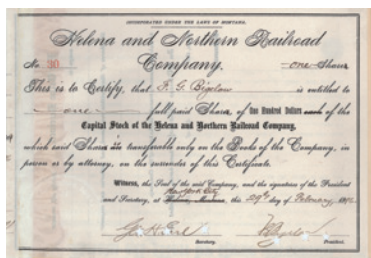 INCORPORATED UNDER THE LAWS OF MONTANA.
Helena and Northern Railroad
No. 30 Company. one Share
This is to Certify, that F. G. Bigelow is entitled to
one full paid Share of One Hundred Dollars each of the
Capital Stock of the Helena and Northern Railroad Company,
which said Share is transferable only on the Books of the Company, in
person or by attorney, on the surrender of this Certificate.
Witness, the Seal of the said Company, and the signatures of the President
New York City
and Secretary, at Helena, Montana, this 29th day of February,
Secretary. President.